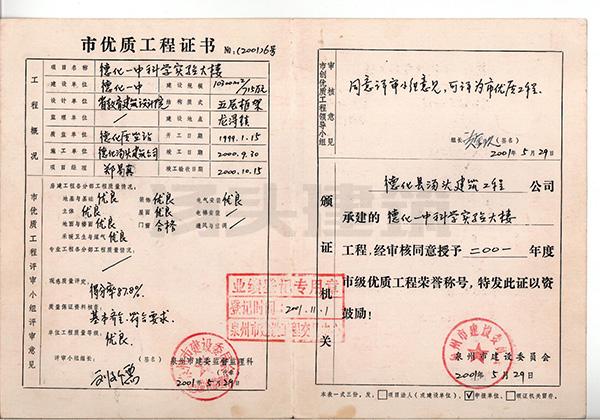 市优质工程证书 №:(2001)6号
工程概况
项目名称 德化一中科学实验大楼
建设单位 德化一中 建设规模 10300m²/715万元
设计单位 省教育建筑设计院 结构类型 五层框架
监理单位 / 建设地点 龙浔镇
质监单位 德化质监站 开工日期 1999.1.15
施工单位 德化汤头建筑公司 竣工日期 2000.9.30
项目经理 竣工验收日期 2000.10.15
市优质工程评审小组评审意见
房建工程各分部工程质量情况:
地基与基础 优良 装饰 优良 电气安装 优良
主体 优良 屋面 优良 电梯安装 /
地面与楼面 优良 门窗 合格 通风与空调 /
采暖卫生与煤气 优良
专业工程各分部工程质量情况:
/
观感质量评定:
得分率87.8%
质量保证资料核查:
基本齐全,符合要求.
单位工程质量等级:
优良.
评审小组组长:
泉州市建委监督监理科
2001年5月29日
业绩登记专用章
登记时间:2001.11.1
市创优质工程领导小组
审核意见
同意评审小组意见,可评为市优质工程.
组长: (签名)
2001年5月29日
颁证机关
德化县汤头建筑工程 公司
承建的 德化一中科学实验大楼
工程,经审核同意授予 二00一 年度
市级优质工程荣誉称号,特发此证以资
鼓励!
泉州市建设委员会
2001年5月29日
本表一式三份,发:☐项目法人(或建设单位)、☑申请单位、☐颁证机关留存。
汤头建筑